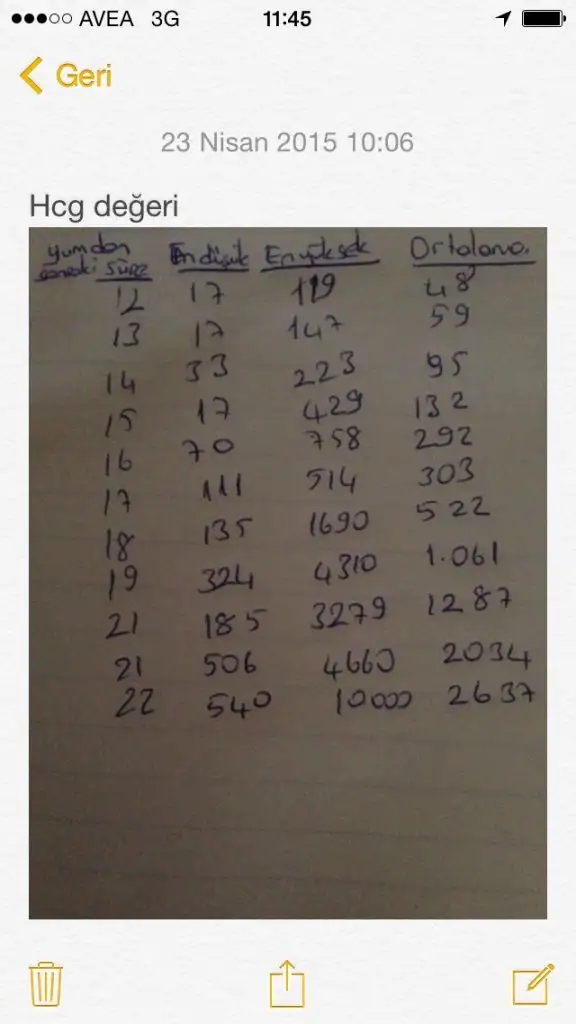 AVEA 3G 11:45
Geri
23 Nisan 2015 10:06
Hcg değeri
yumdan sonraki süre En düşük En yüksek Ortalama
12 17 119 48
13 17 147 59
14 33 223 95
15 17 429 132
16 70 758 292
17 111 514 303
18 135 1690 522
19 324 4310 1.061
21 185 3279 1287
21 506 4660 2034
22 540 10000 2637